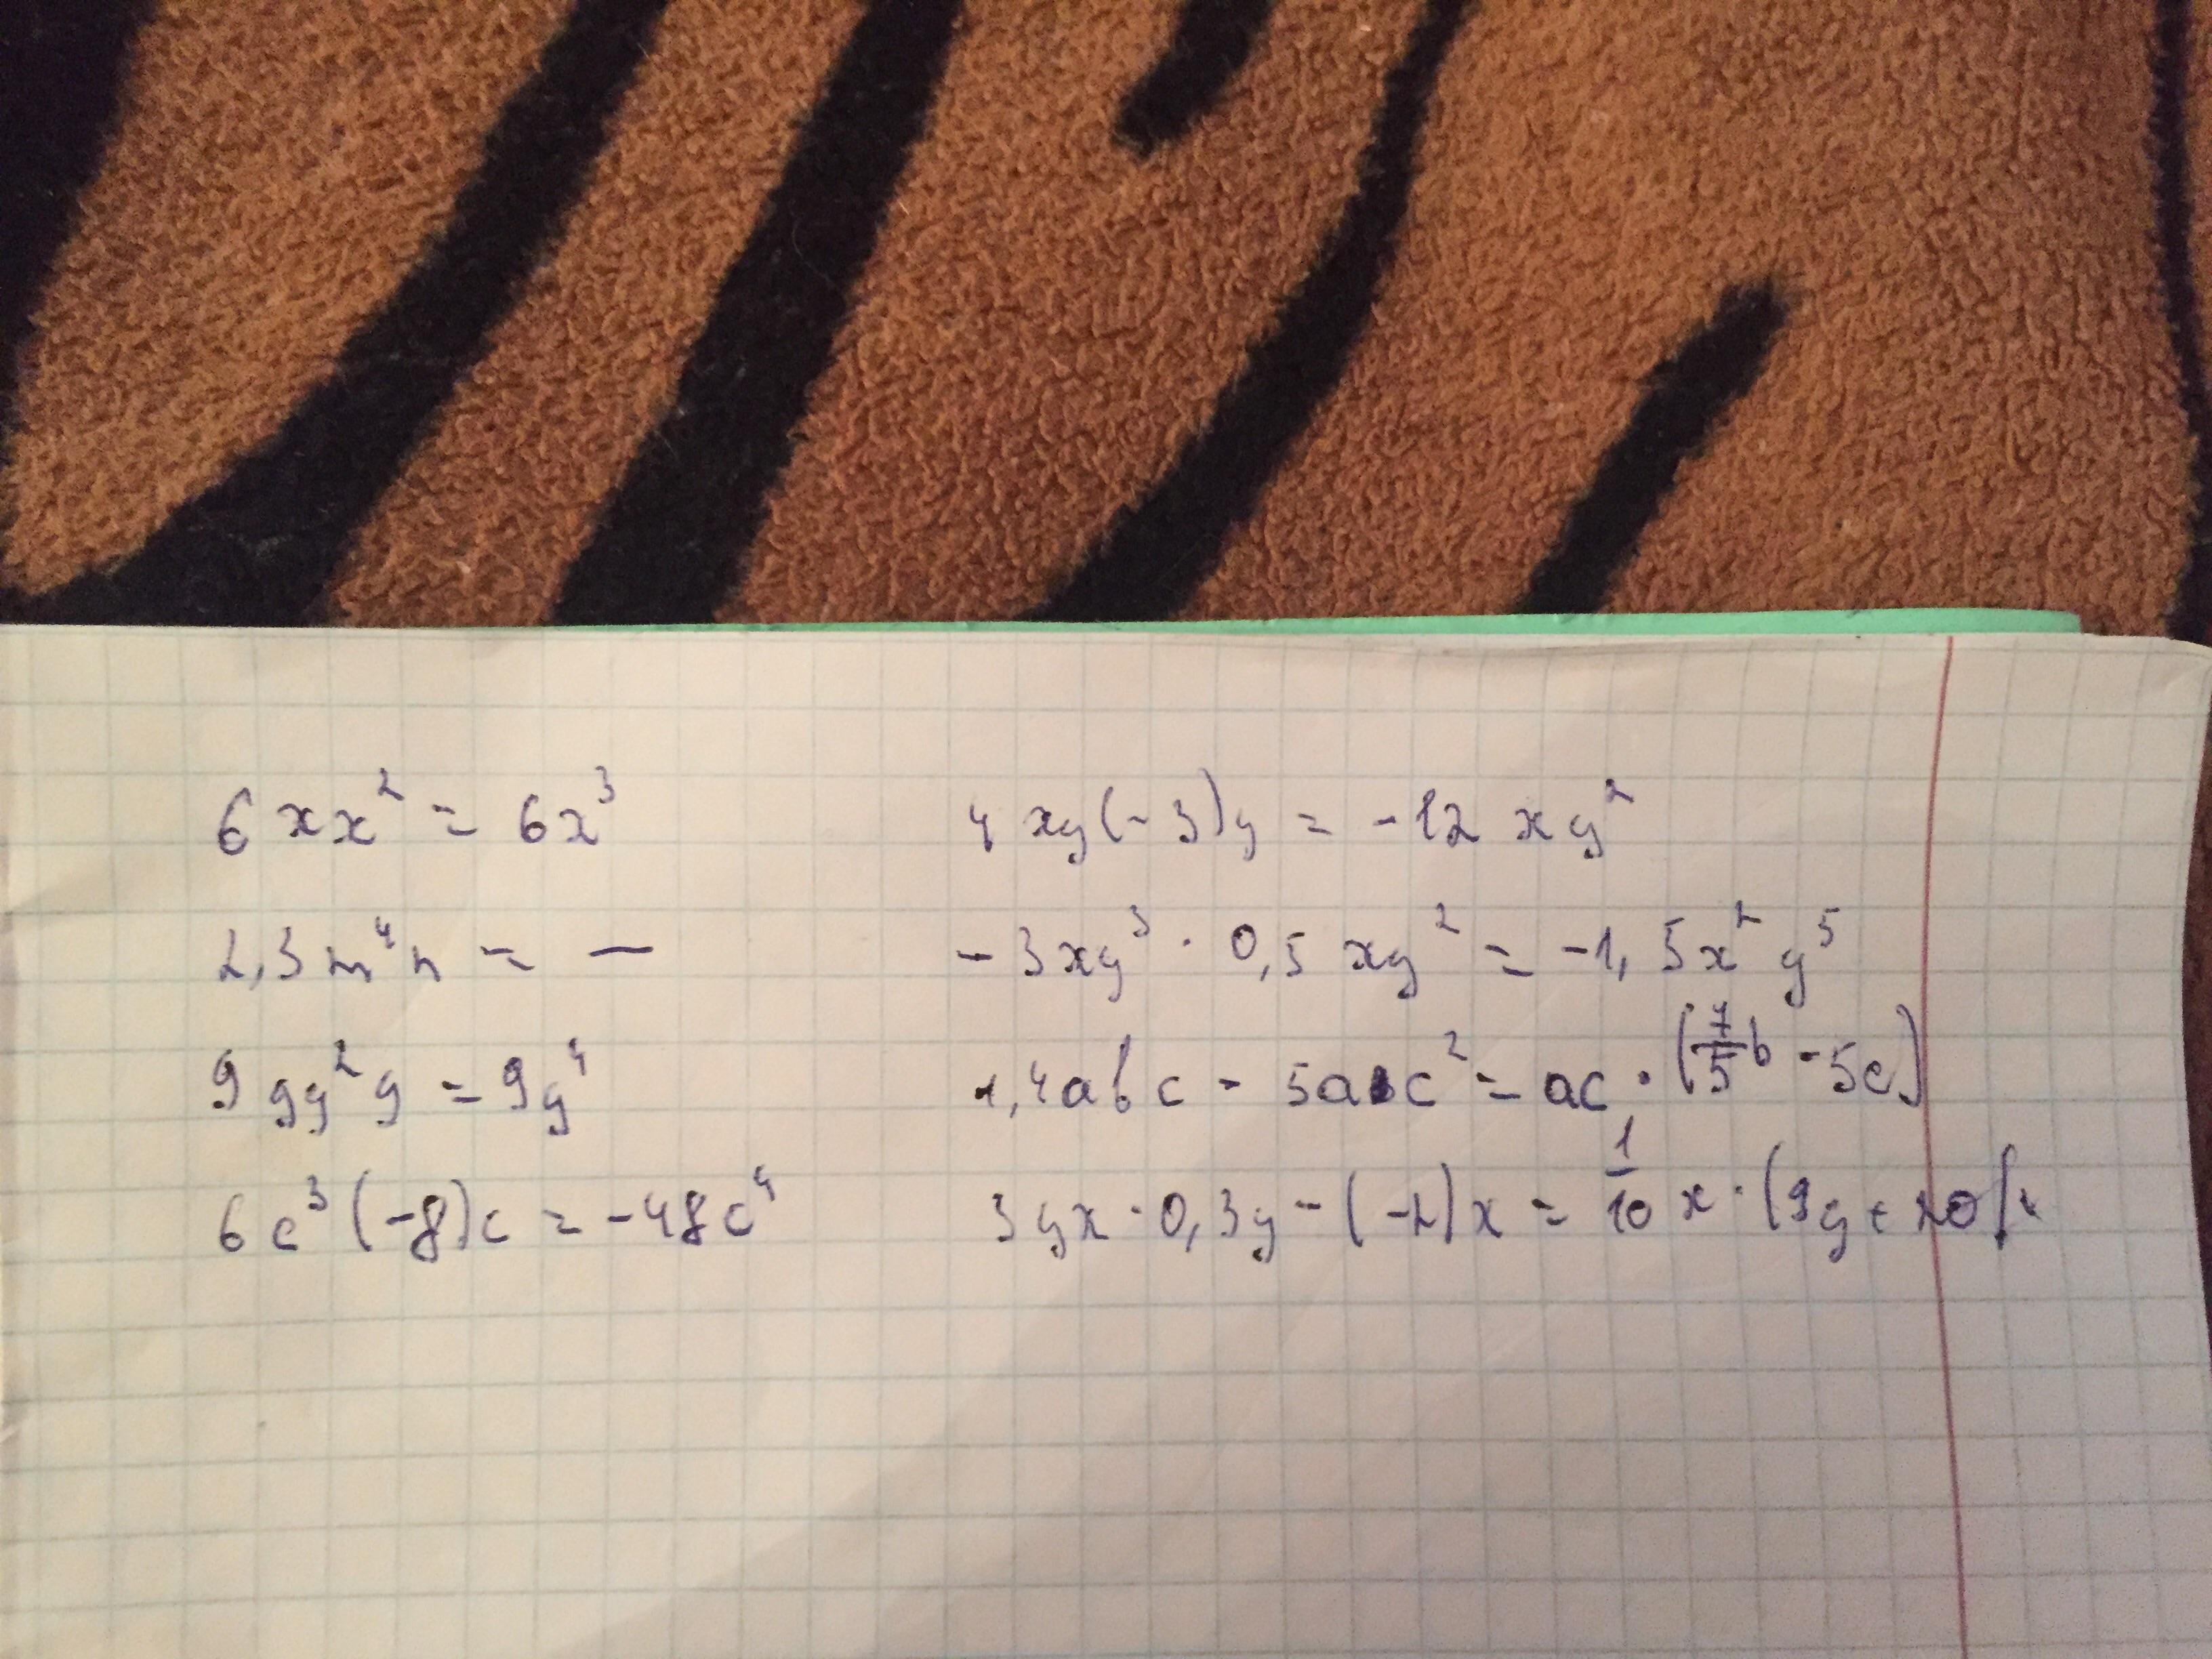 6xx² = 6x³
2,3m⁴n = —
9yy²y = 9y⁴
6c³(-8)c = -48c⁴
4xy(-3)y = -12xy²
-3xy³ · 0,5xy² = -1,5x²y⁵
1,4abc - 5abc² = ac · (7/5b - 5c)
3yx · 0,3y - (-2)x = 1/10x · (9y + 20)